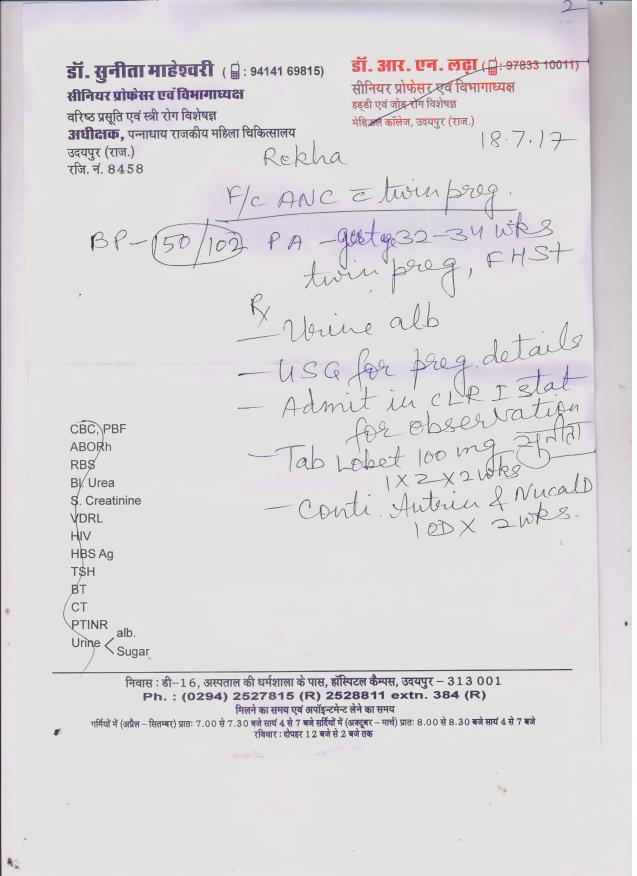 2
डॉ. सुनीता माहेश्वरी ( : 94141 69815)
सीनियर प्रोफेसर एवं विभागाध्यक्ष
वरिष्ठ प्रसूति एवं स्त्री रोग विशेषज्ञ
अधीक्षक, पन्नाधाय राजकीय महिला चिकित्सालय
उदयपुर (राज.)
रजि. नं. 8458
डॉ. आर. एन. लढ़ा ( : 97833 10011)
सीनियर प्रोफेसर एवं विभागाध्यक्ष
हड्डी एवं जोड़ रोग विशेषज्ञ
मेडिकल कॉलेज, उदयपुर (राज.)
18.7.17
Rekha
F/c ANC c̄ twin preg.
BP - 150/102 PA - gestage 32-34 wks
twin preg, FHS+
Rx
- Urine alb
- USG for preg. details
- Admit in CLR I stat
for observation
- Tab Lobet 100 mg सुनीता
1 X 2 X 2 wks
- Conti. Autrin & Nucal D
1 OD X 2 wks.
CBC, PBF
ABORh
RBS
Bl. Urea
S. Creatinine
VDRL
HIV
HBS Ag
TSH
BT
CT
PTINR
Urine < alb.
Sugar
निवास : डी-16, अस्पताल की धर्मशाला के पास, हॉस्पिटल कैम्पस, उदयपुर - 313 001
Ph. : (0294) 2527815 (R) 2528811 extn. 384 (R)
मिलने का समय एवं अपॉइन्टमेन्ट लेने का समय
गर्मियों में (अप्रैल - सितम्बर) प्रातः 7.00 से 7.30 बजे सायं 4 से 7 बजे सर्दियों में (अक्टूबर - मार्च) प्रातः 8.00 से 8.30 बजे सायं 4 से 7 बजे
रविवार : दोपहर 12 बजे से 2 बजे तक